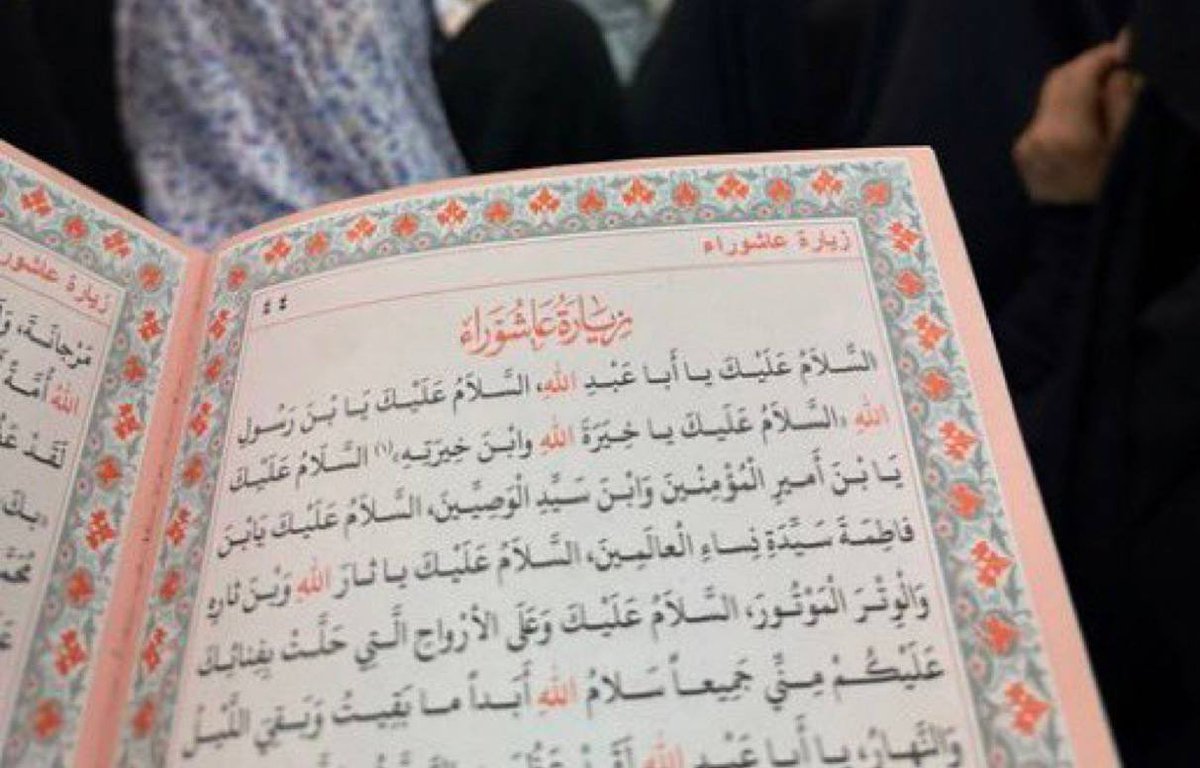 زيارة عاشوراء
٤٤
زِيَارَةُ عَاشُورَاءَ
السَّلَامُ عَلَيْكَ يا أَبا عَبْدِ اللهِ، السَّلَامُ عَلَيْكَ يَا بْنَ رَسُولِ
اللهِ «السَّلَامُ عَلَيكَ يا خِيَرَةَ اللهِ وابْنَ خِيَرَتِهِ»(١) السَّلَامُ عَلَيْكَ
يَا بْنَ أَميرِ الْمُؤْمِنْينَ وَابْنَ سَيِّدِ الْوَصِيِّينَ، السَّلَامُ عَلَيْكَ يَابْنَ
فاطِمَةَ سَيِّدَةِ نِساءِ الْعالَمِينَ، السَّلَامُ عَلَيْكَ يا ثارَ اللهِ وَبْنَ ثارِهِ
وَالْوِتْرَ الْمَوْتُورَ، السَّلَامُ عَلَيْكَ وَعَلَى الأَرْواحِ الَّتِي حَلَّتْ بِفِنائِكَ
عَلَيْكُمْ مِنِّي جَمِيعاً سَلامُ اللهِ أَبَداً ما بَقِيتُ وَبَقِيَ اللَّيْلُ
وَالنَّهارُ، يا أَبا عَبْدِ اللهِ لَقَدْ عَظُمَتِ
زيارة عاشوراء
مَرْجانَةَ،
اللهُ أُمَّةً
لَقَدْ
بِكَ